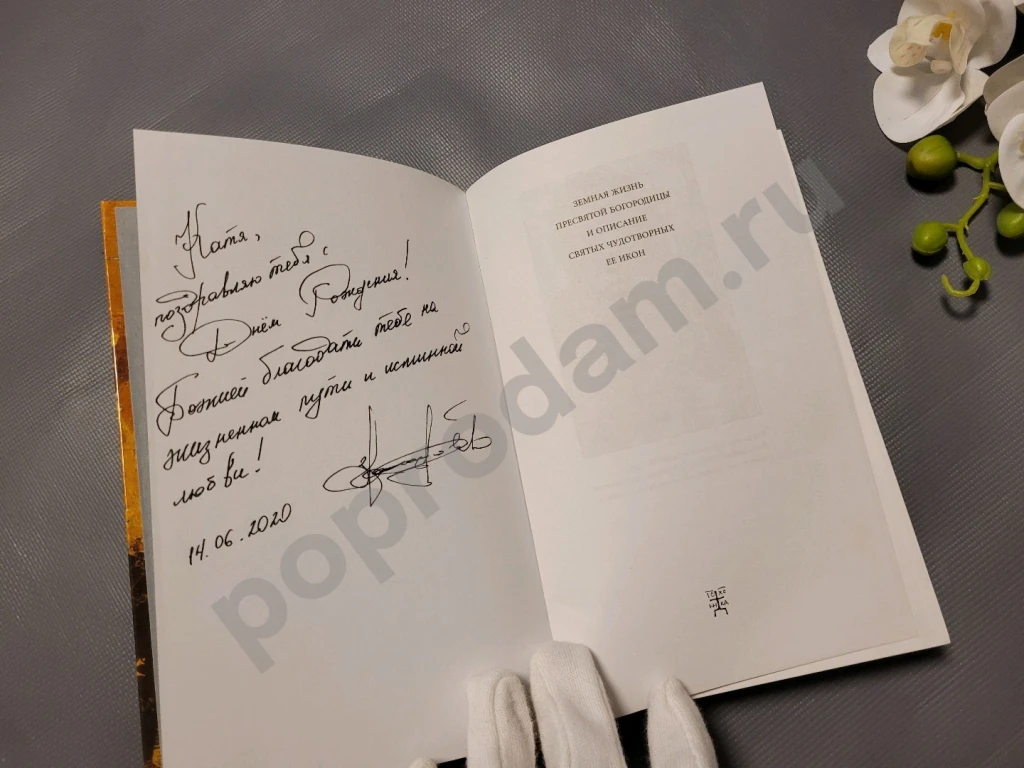 Катя,
поздравляю тебя с
Днём Рождения!
Божией благодати тебе на
жизненном пути и истинной
любви!
14.06.2020
ЗЕМНАЯ ЖИЗНЬ
ПРЕСВЯТОЙ БОГОРОДИЦЫ
И ОПИСАНИЕ
СВЯТЫХ ЧУДОТВОРНЫХ
ЕЕ ИКОН
IC XC
НИ КА
poprodam.ru